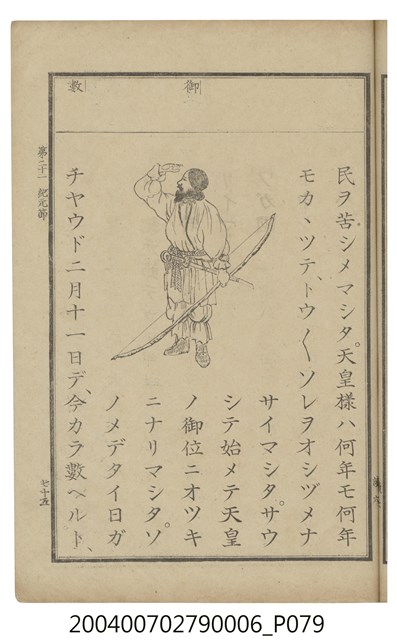 御
數
民ヲ苦シメマシタ。天皇樣ハ何年モ何年
モカヽツテ、トウ〱ソレヲオシヅメナ
サイマシタ。サウ
シテ始メテ天皇
ノ御位ニオツキ
ニナリマシタ。ソ
ノメデタイ日ガ
チヤウド二月十一日デ、今カラ數ヘルト、
第二十一 紀元節
七十五
200400702790006_P079